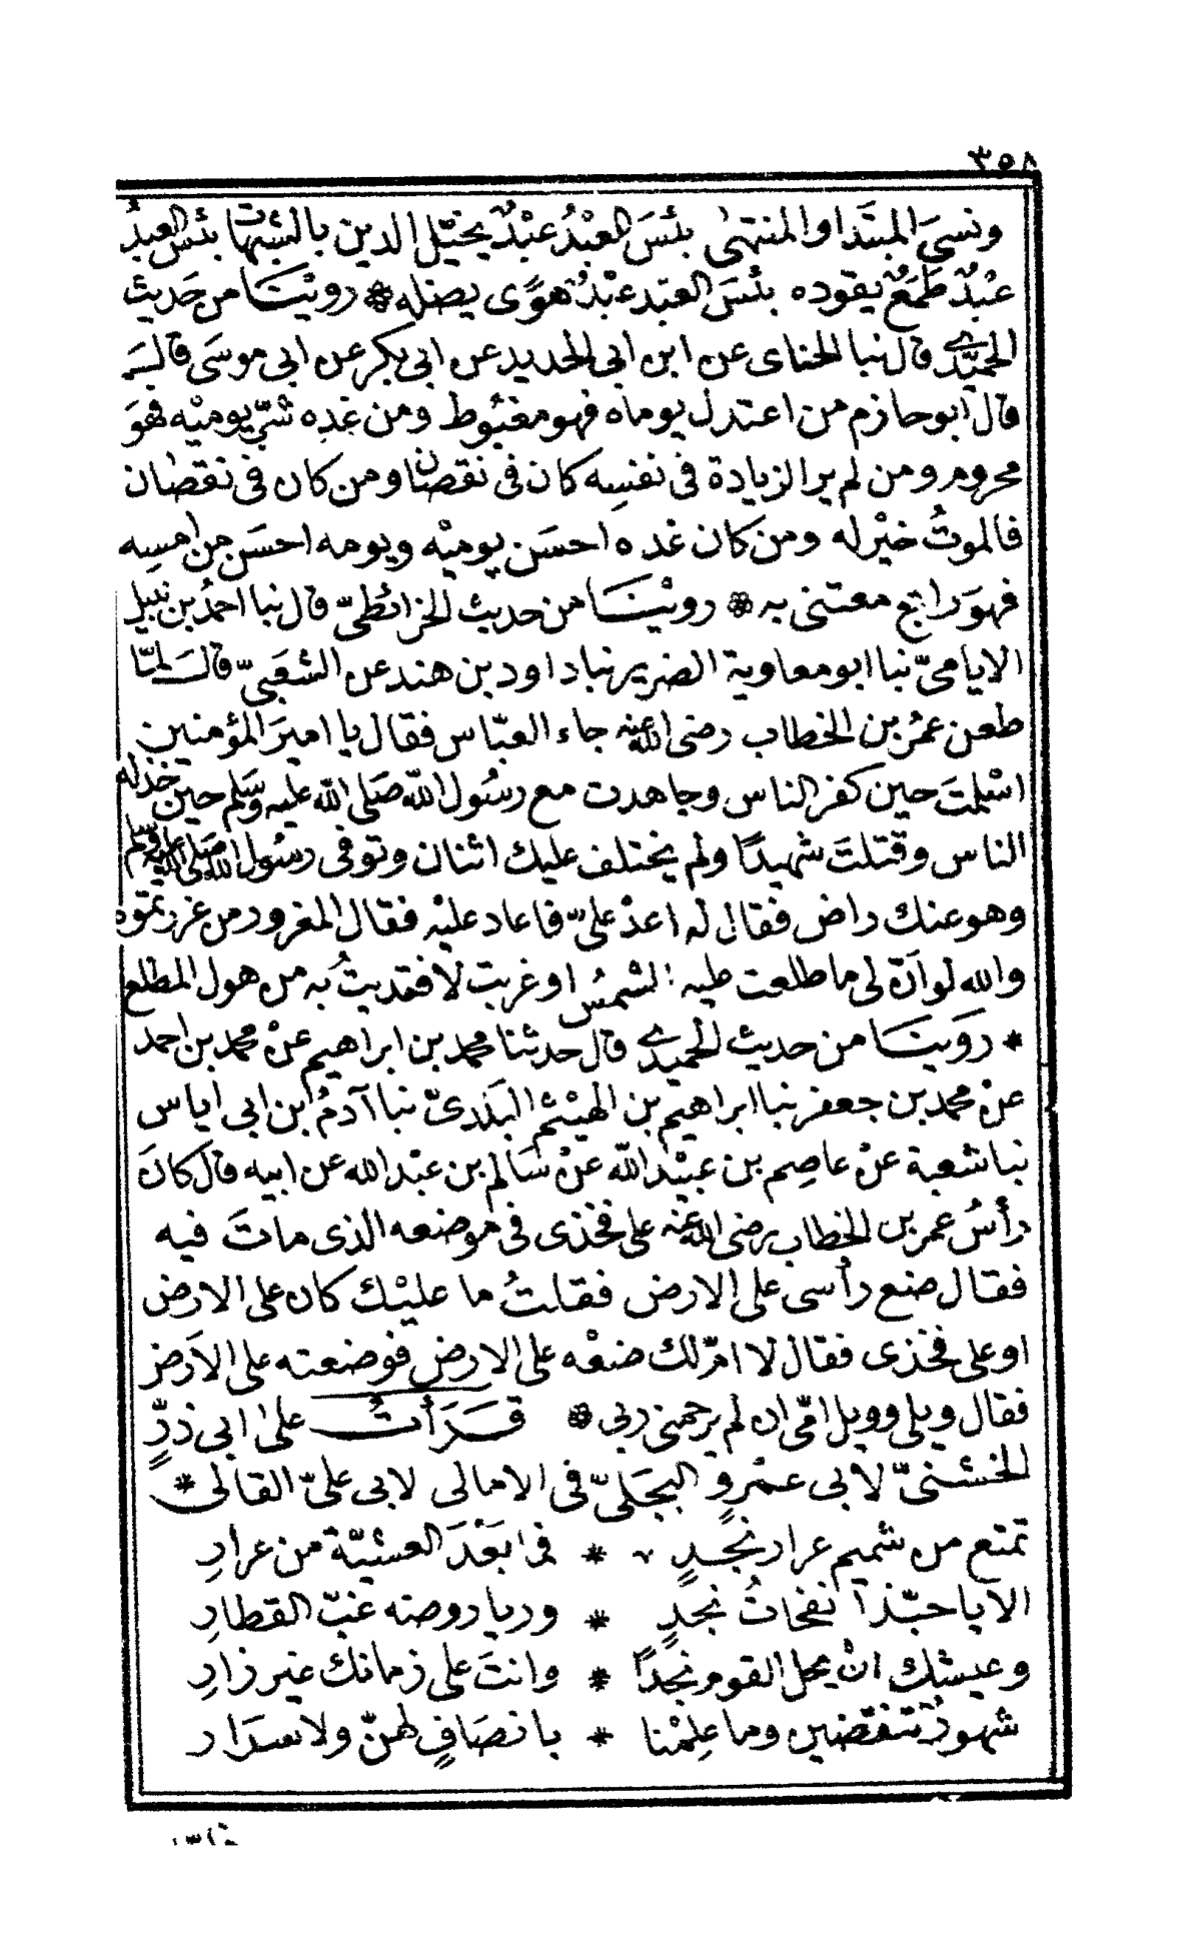 ٣٥٨
ونسىَ المبتَدا والمنتهىٰ بئسَ العبْدُ عبْدٌ يختِل الدين بالشبهات بئس العبدُ
عبْدٌ طمَعٌ يقوده بئسَ العبد عبْدٌ هوًى يضله * روينَا من حَديث
الحميْدي قال نبا الحناى عن ابن ابي الحديد عن ابى بكر عن ابى موسَى قالَ
قال ابو حازم من اعتدل يوماه فهو مغبُوط ومن غدِه شرّ يوميْه فهوَ
محروم ومن لم ير الزيادة فى نفسِه كان فى نقصان ومن كان فى نقصان
فالموتُ خيْر له ومن كان غده احسَن يوميْه ويومه احسَن من امسِه
فهوَ رابح معتنى به * رويْنَا من حديث الخرائطىّ قال نبا احمدُ بن نبيل
الايامىّ نبا ابو معاوية الضرير نبا داود بن هند عن الشعَبىّ قالَ لمّا
طعن عمُر بن الخطاب رضى الله عنه جاء العبّاس فقال يا اميرَ المؤمنين
اسْلمتَ حين كفر الناس وجاهدت مع رسُول الله صَلى الله عليه وسَلم حين خذله
الناس وقتلتَ شهيدًا ولم يختلف عليك اثنان وتوفى رسُول الله صلى الله عليه وسلم
وهو عنك راض فقال له اعدْ علىّ فاعاد عليْه فقال المغرور من غررتموه
والله لو اَنّ لى ما طلعت عليه الشمسُ او غربت لافتديتُ به من هول المطلع
* رَوَينَا من حديث الحميدي قال حدثنا محمد بن ابراهيم عنْ محمد بن احمد
عنْ محمد بن جعفر نبا ابراهيم بن الهيْثم البَلدىّ نبا آدمُ ابن ابى اياس
نبا شعبة عنْ عاصِم بن عبيْد الله عنْ سَالم بن عبْد الله عن ابيه قال كانَ
رأسُ عمر بن الخطاب رضى الله عنه على فخذى فى موضعه الذى ماتَ فيه
فقال ضع رأسى على الارض فقلتُ ما عليْك كان على الارض
او على فخذى فقال لا امّ لك ضعْه على الارض فوضعته على الاَرض
فقال ويلى وويل امّى ان لم يرحمنى ربى * قَرَأتُ علىٰ ابى ذرٍّ
الخشنىّ لأبى عمْرٍو البجَلىّ فى الامالى لابى علىّ القالى *
تمتع من شميم عرار نجْدٍ * فما بَعْدَ العشيّة من عرارِ
الا يا حبّذا نفحاتُ نجدٍ * وريا روضه غبّ القطارِ
وعيشك انْ يحل القوم نجدًا * وانتَ على زمانك غير زارِ
شهورٌ تنقضين وما علِمْنا * بانصَافٍ لهنّ ولا سرَار